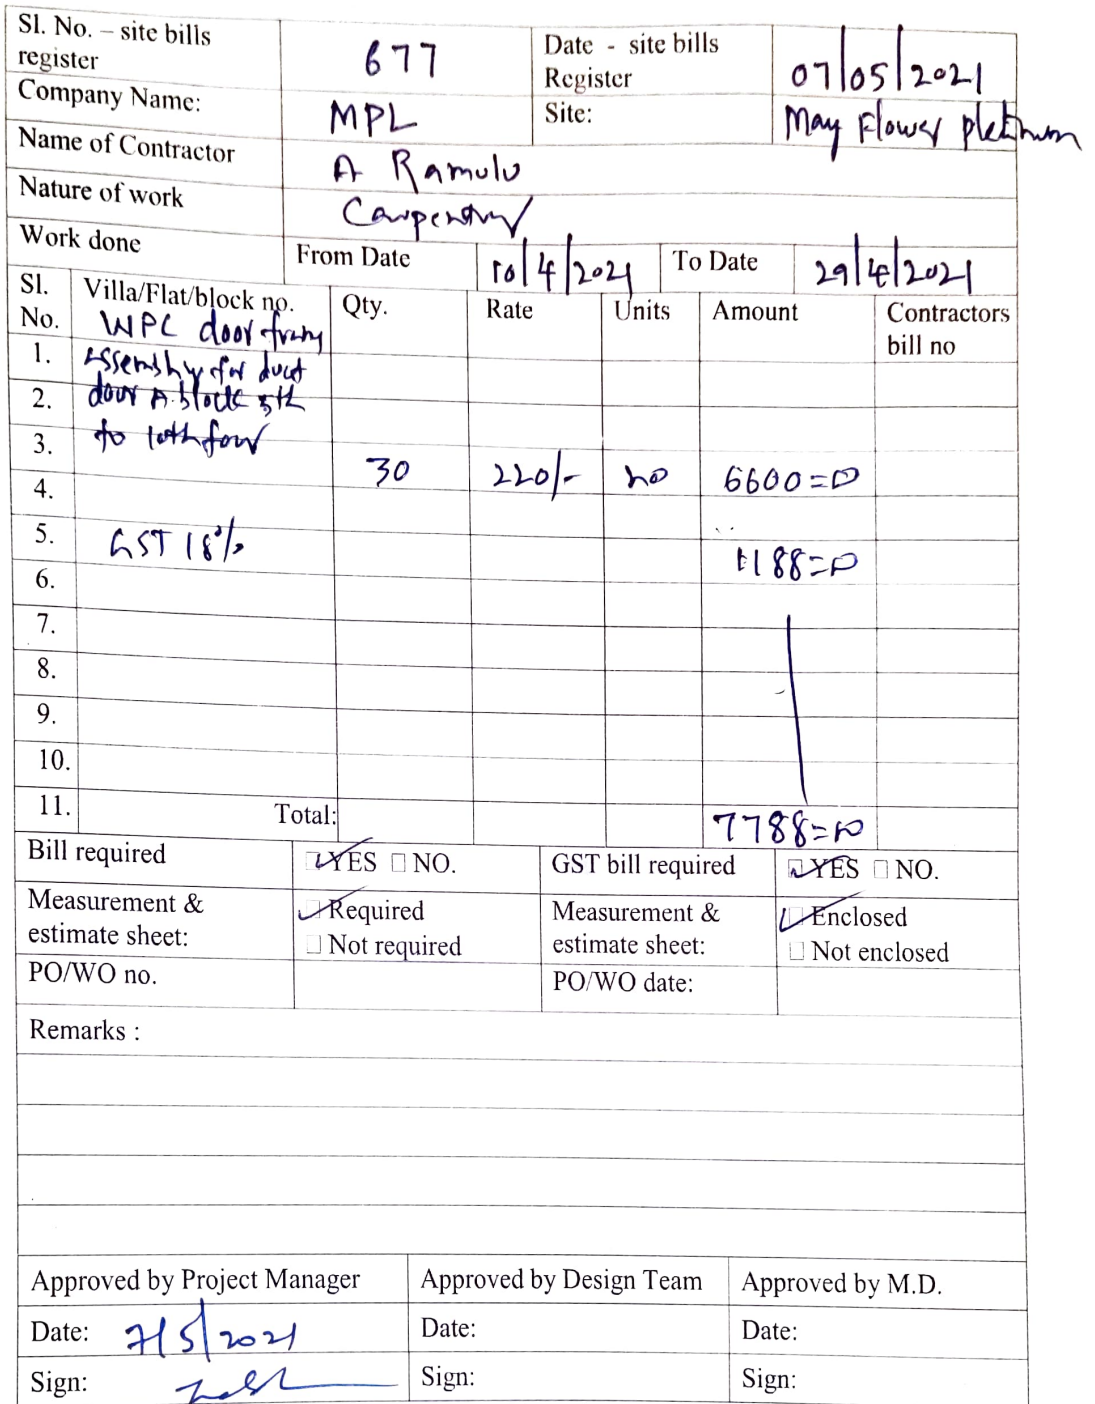 Sl. No. – site bills register 677 Date - site bills Register 07/05/2021
Company Name: MPL Site: May Flower platinum
Name of Contractor A Ramulu
Nature of work Carpentry
Work done From Date 10/4/2021 To Date 29/4/2021
Sl. No. Villa/Flat/block no. Qty. Rate Units Amount Contractors bill no
WPC door
1. Assembly for duct
2. door A. block 5th
3. to 10th
30 220/- no 6600=0
4.
5. GST 18% 1188=0
6.
7.
8.
9.
10.
11. Total: 7788=00
Bill required YES NO. GST bill required YES NO.
Measurement & estimate sheet: Required Not required Measurement & estimate sheet: Enclosed Not enclosed
PO/WO no. PO/WO date:
Remarks :
Approved by Project Manager Approved by Design Team Approved by M.D.
Date: 7/5/2021 Date: Date:
Sign: Sign: Sign: